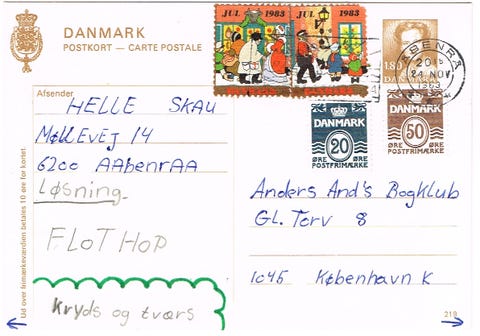 DANMARK
POSTKORT — CARTE POSTALE
JUL 1983
JUL 1983
180
DANMARK
ÅBENRÅ
24 NOV.
1983
DANMARK
20
ØRE ØRE
POSTFRIMÆRKE
DANMARK
50
ØRE ØRE
POSTFRIMÆRKE
Afsender
HELLE SKAU
MøllEvEj 14
6200 AAbenrAA
Løsning.
FLOT HOP
Kryds og tværs
Anders And's Bogklub
GL. Torv 8
1045 København K
Ud over frimærkeværdien betales 10 øre for kortet.
218